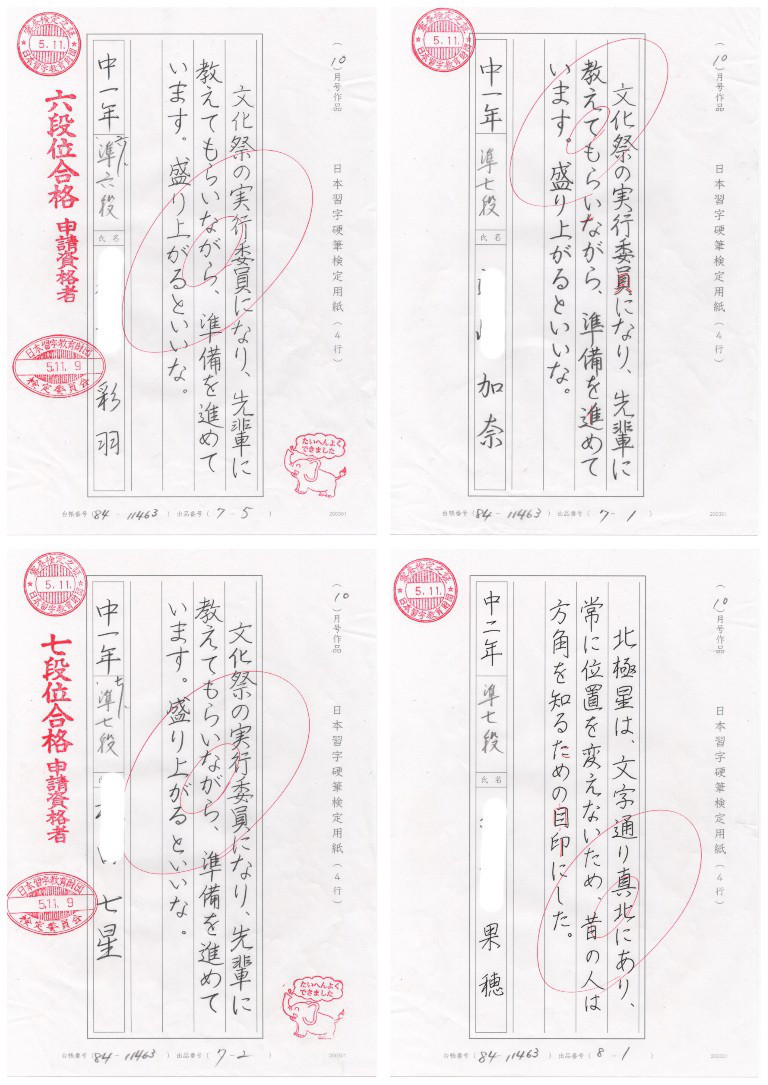 (10)月号作品
日本習字硬筆検定用紙(4行)
文化祭の実行委員になり、先輩に
教えてもらいながら、準備を進めて
います。盛り上がるといいな。
中一年
準六段
氏名
彩羽
六段位合格 申請資格者
審査検定之証
5.11.
日本習字教育財団
日本習字教育財団
5.11.9
検定委員会
たいへんよく
できました
台帳番号(84-11463) 出品番号(7-5)
200301
(10)月号作品
日本習字硬筆検定用紙(4行)
文化祭の実行委員になり、先輩に
教えてもらいながら、準備を進めて
います。盛り上がるといいな。
中一年
準七段
氏名
加奈
審査検定之証
5.11.
日本習字教育財団
台帳番号(84-11463) 出品番号(7-1)
200301
(10)月号作品
日本習字硬筆検定用紙(4行)
文化祭の実行委員になり、先輩に
教えてもらいながら、準備を進めて
います。盛り上がるといいな。
中一年
準七段
七星
七段位合格 申請資格者
審査検定之証
5.11.
日本習字教育財団
日本習字教育財団
5.11.9
検定委員会
たいへんよく
できました
台帳番号(84-11463) 出品番号(7-2)
200301
(10)月号作品
日本習字硬筆検定用紙(4行)
北極星は、文字通り真北にあり、
常に位置を変えないため、昔の人は
方角を知るための目印にした。
中二年
準七段
氏名
果穂
審査検定之証
5.11.
日本習字教育財団
台帳番号(84-11463) 出品番号(8-1)
200301